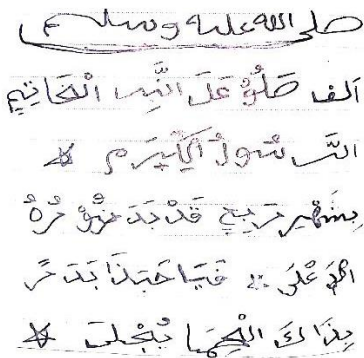 صلى الله عليه وسلم
الف صَلُّوْ عَلَ النَّبِى الْخَاتِيمِ
الرَّسُولُ الْكَرِيَمِ
بِشَهْرِ رَبِيعِ قَدْ بَدَ نُوْرُهُ
الْاعْلَى فَيَا حَبَّذَا بَدَرً
بِذَاكَ الْحِمَا يُجْلَى